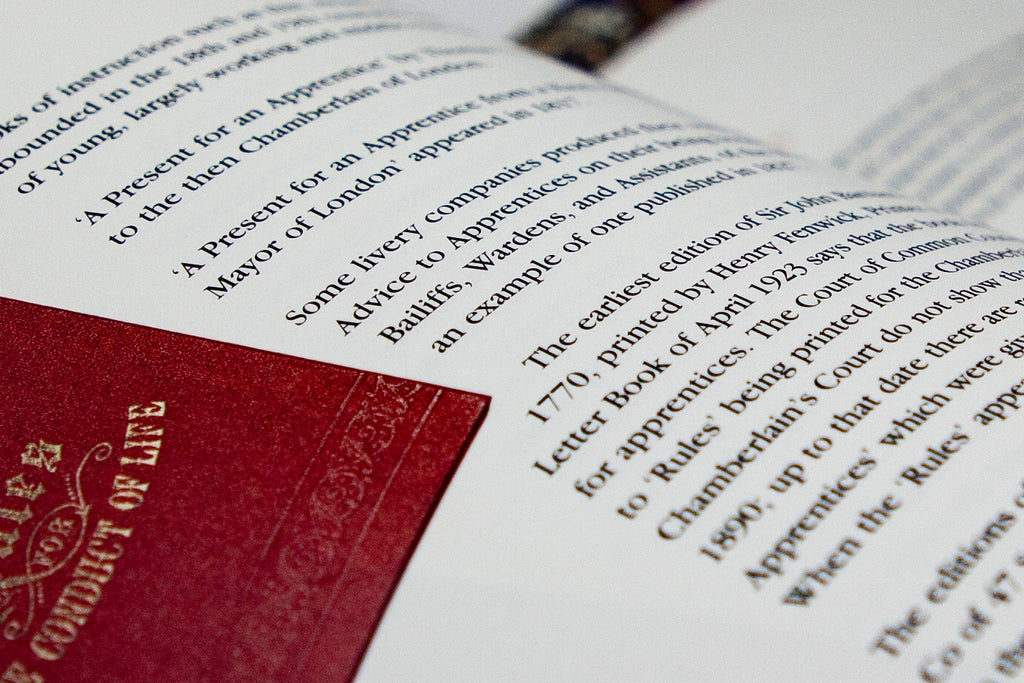 of instruction such as
bounded in the 18th and 19th
of young, largely working
'A Present for an Apprentice' by
to the then Chamberlain of London.
'A Present for an Apprentice from a
Mayor of London' appeared in
Some livery companies produced their
Advice to Apprentices on their
Bailiffs, Wardens, and Assistants,
an example of one published in
The earliest edition of Sir John
1770, printed by Henry Fenwick,
Letter Book of April 1923 says that the
for apprentices. The Court of Common
to 'Rules' being printed for the Chamberlain
Chamberlain's Court do not show
1890; up to that date there are
Apprentices' which were
When the 'Rules'
The editions of
Co of 47
FOR
CONDUCT OF LIFE